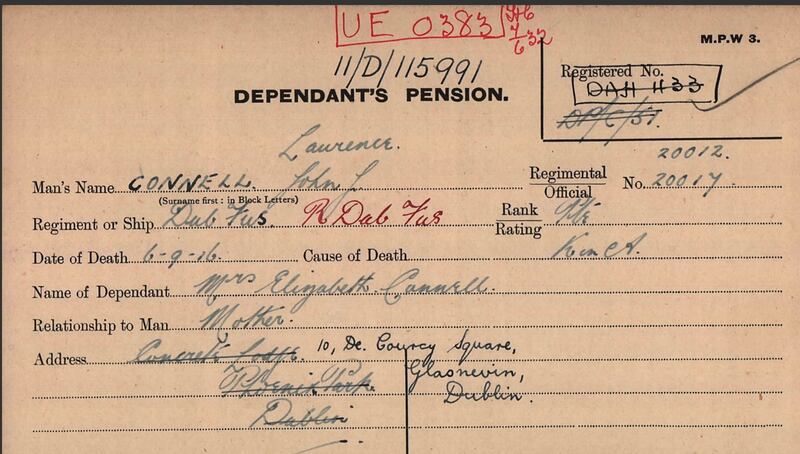 UE 0383
11/D/115991
M.P.W 3.
DEPENDANT'S PENSION.
Registered No.
DAH 1133
DP/C/51.
Laurence.
20012.
Man's Name CONNELL. John J. Regimental Official No. 20017.
(Surname first: in Block Letters)
Regiment or Ship Dub Fus. R Dub Fus Rank Rating Pte
Date of Death 6-9-16. Cause of Death K in A.
Name of Dependant Mrs Elizabeth Connell.
Relationship to Man Mother.
Address Concrete Lodge. 10, De Courcy Square,
Phoenix Park Glasnevin,
Dublin Dublin.